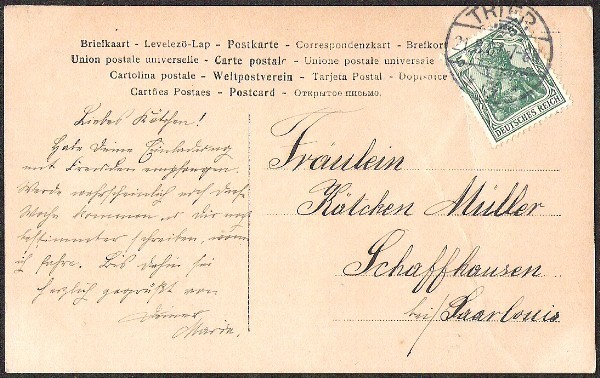 Briefkaart - Levelező-Lap - Postkarte - Correspondenzkart - Brefkort
Union postale universelle - Carte postale - Unione postale universale
Cartolina postale - Weltpostverein - Tarjeta Postal - Dopisnice
Cartões Postaes - Postcard - Открытое письмо.
TRIER
DEUTSCHES REICH
Liebes Kätchen!
Habe Deine Einladung
mit Freuden empfangen.
Werde wahrscheinlich noch diese
Woche kommen, Dir
bestimmter schreiben, wann
ich fahre. Bis dahin sei
herzlich gegrüßt von
Deiner
Maria.
Fräulein
Kätchen Müller
Schaffhausen
bei/Saarlouis